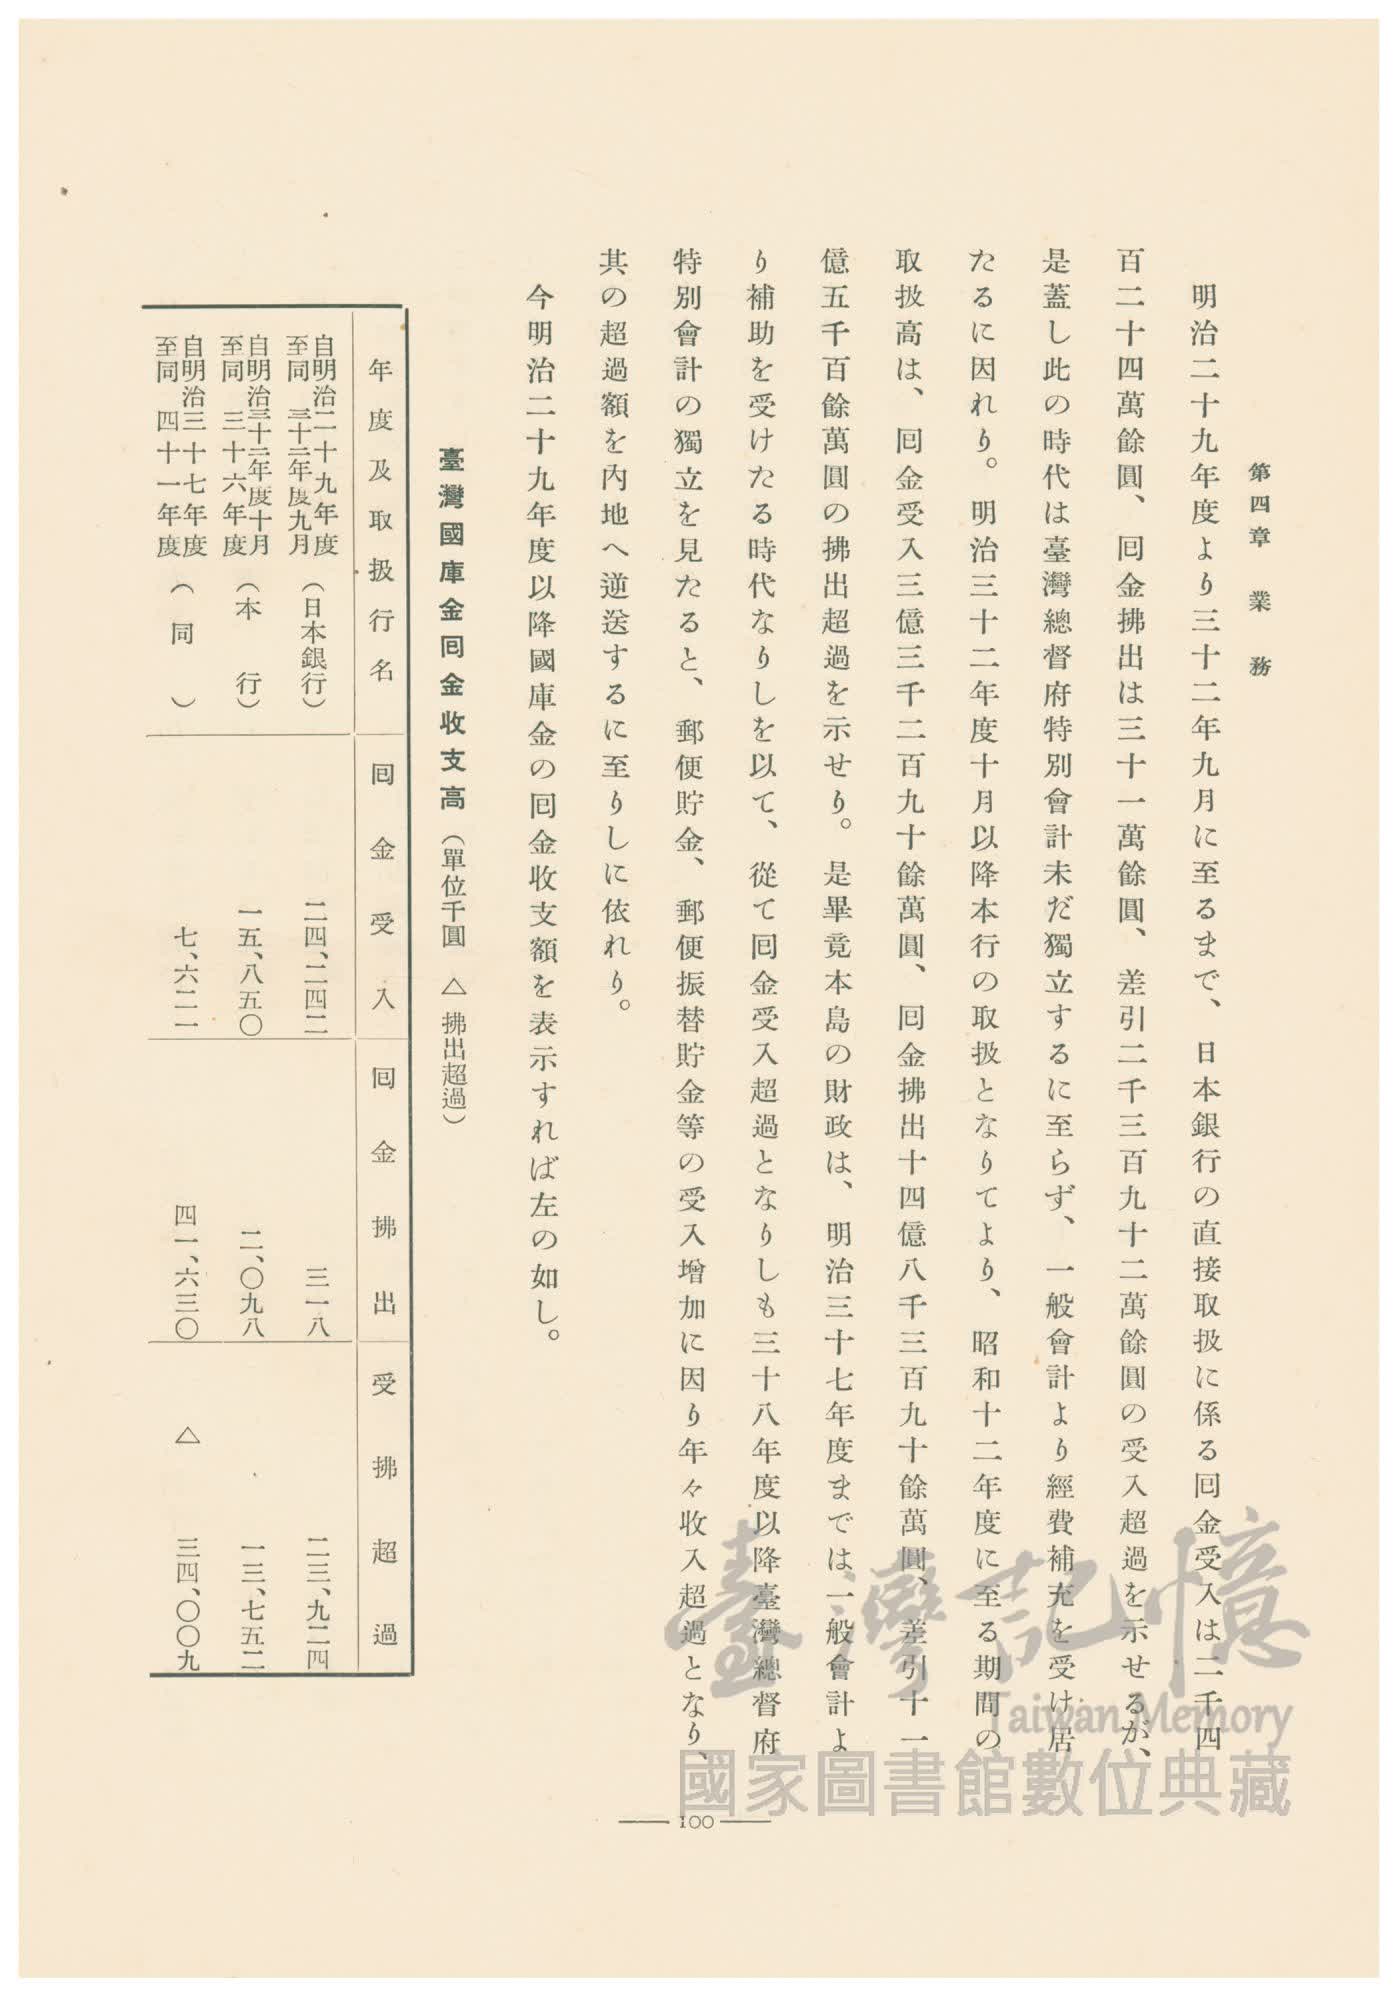 第四章　業　務
明治二十九年度より三十二年九月に至るまで、日本銀行の直接取扱に係る囘金受入は二千四
百二十四萬餘圓、囘金拂出は三十一萬餘圓、差引二千三百九十二萬餘圓の受入超過を示せるが、
是蓋し此の時代は臺灣總督府特別會計未だ獨立するに至らず、一般會計より經費補充を受け居
たるに因れり。明治三十二年度十月以降本行の取扱となりてより、昭和十二年度に至る期間の
取扱高は、囘金受入三億三千二百九十餘萬圓、囘金拂出十四億八千三百九十餘萬圓、差引十一
億五千百餘萬圓の拂出超過を示せり。是畢竟本島の財政は、明治三十七年度までは一般會計よ
り補助を受けたる時代なりしを以て、從て囘金受入超過となりしも三十八年度以降臺灣總督府
特別會計の獨立を見たると、郵便貯金、郵便振替貯金等の受入增加に因り年々收入超過となり、
其の超過額を內地へ逆送するに至りしに依れり。
今明治二十九年度以降國庫金の囘金收支額を表示すれば左の如し。
臺灣國庫金囘金收支高（單位千圓　△拂出超過）
年度及取扱行名　囘金受入　囘金拂出　受拂超過
自明治二十九年度
至同　三十二年度九月（日本銀行）　二四、二四二　三一八　二三、九二四
自明治三十二年度十月
至同　三十六年度（本　行）　一五、八五〇　二、〇九八　一三、七五二
自明治三十七年度
至同　四十一年度（同　）　七、六二一　四一、六三〇　△　三四、〇〇九
100
臺灣記憶
Taiwan Memory
國家圖書館數位典藏